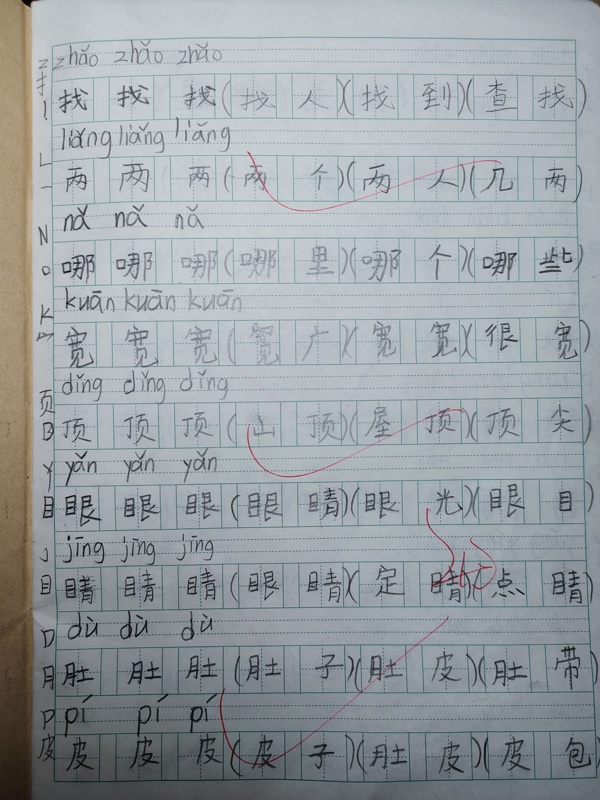 zhǎo zhǎo zhǎo
扌 找 找 找 (找 人)(找 到)(查 找)
liǎng liǎng liǎng
L 一 两 两 两 (两 个)(两 人)(几 两)
nǎ nǎ nǎ
N 口 哪 哪 哪 (哪 里)(哪 个)(哪 些)
kuān kuān kuān
K 宀 宽 宽 宽 (宽 广)(宽 宽)(很 宽)
dǐng dǐng dǐng
页 D 顶 顶 顶 (山 顶)(屋 顶)(顶 尖)
yǎn yǎn yǎn
Y 目 眼 眼 眼 (眼 睛)(眼 光)(眼 目)
jīng jīng jīng
J 目 睛 睛 睛 (眼 睛)(定 睛)(点 睛)
dù dù dù
D 月 肚 肚 肚 (肚 子)(肚 皮)(肚 带)
pí pí pí
P 皮 皮 皮 皮 (皮 子)(肚 皮)(皮 包)